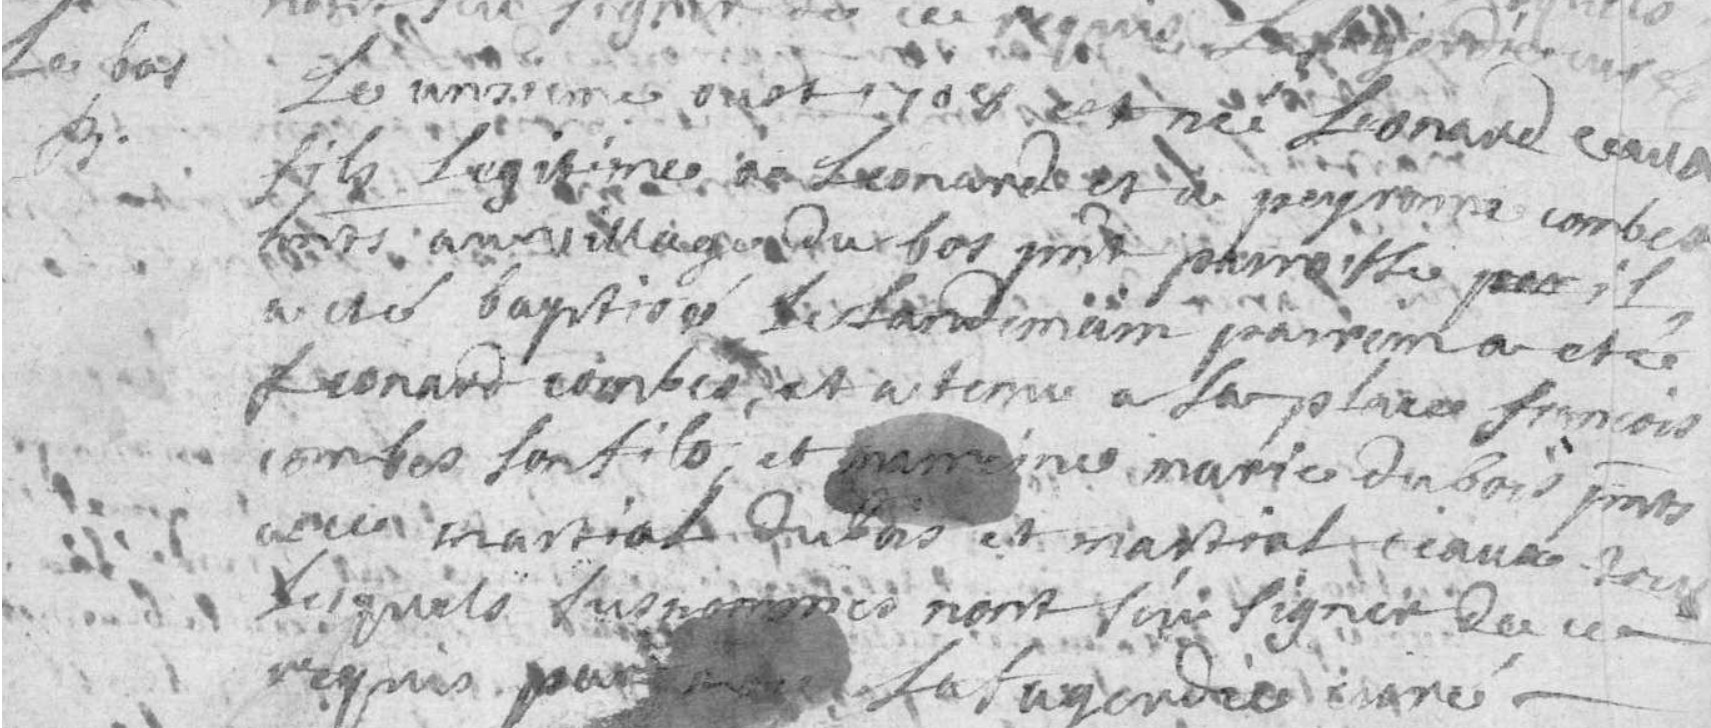 nont seü signer de ce requis Lafagerdie curé
Le bos
Le unsieme oust 1708 est neé Leonard ceaux
B.
fils legitime a Leonard et a peyronne combes
du village du bos pnt parroisse il
a eté baptisé le landemain parrein a eté
Leonard combes, et a tenu a sa place francois
combes son fils, et marreine marie dubois pnts
avec martial dubois et martial ceaux tous
lesquels susnommes nont seü signer de ce
requis par moy Lafagerdie curé